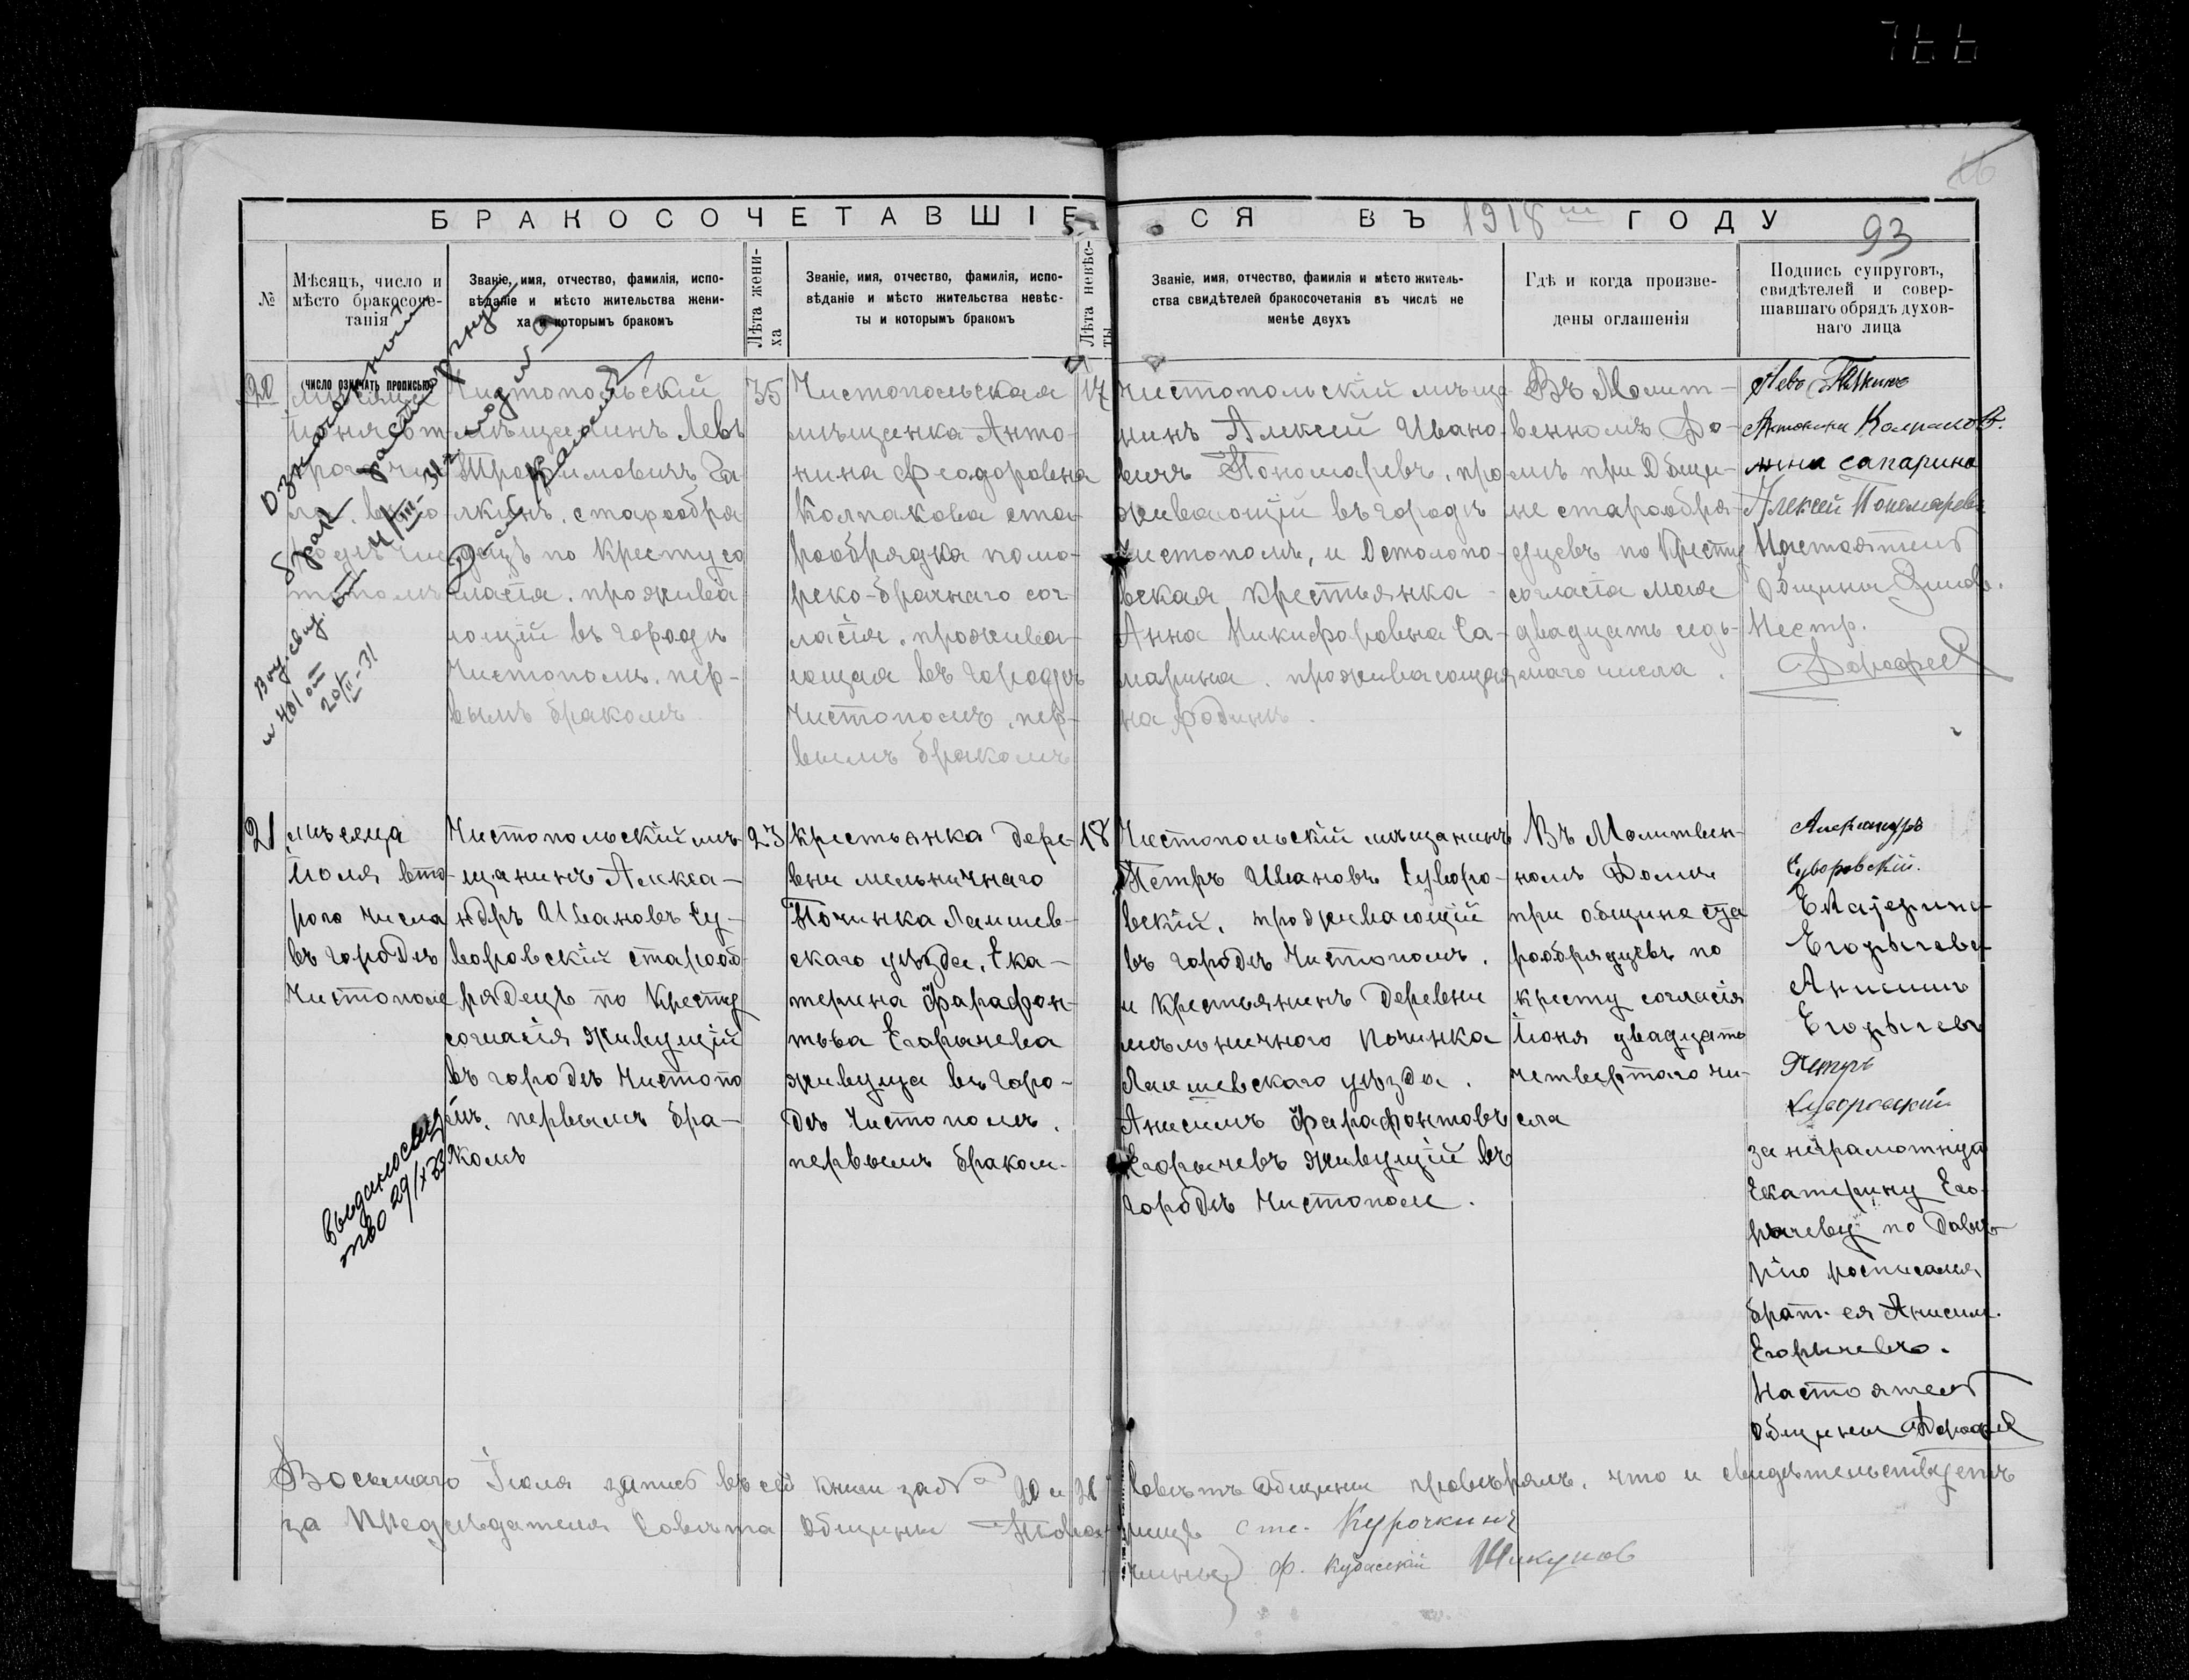 БРАКОСОЧЕТАВШІЕСЯ ВЪ 1918 ГОДУ
93
№
Мѣсяцъ, число и
мѣсто бракосоче-
танія
(число означать прописью)
Званіе, имя, отчество, фамилія, испо-
вѣданіе и мѣсто жительства жени-
ха и которымъ бракомъ
Лѣта жени-
ха
Званіе, имя, отчество, фамилія, испо-
вѣданіе и мѣсто жительства невѣс-
ты и которымъ бракомъ
Лѣта невѣс-
ты
Званіе, имя, отчество, фамилія и мѣсто житель-
ства свидѣтелей бракосочетанія въ числѣ не
менѣе двухъ
Гдѣ и когда произве-
дены оглашенія
Подпись супруговъ,
свидѣтелей и совер-
шавшаго обрядъ духов-
наго лица
20
мѣсяца
Чистопольскій
мѣщанинъ Левъ
Трофимовичъ
старообря
децъ по Кресту со
гласія. прожива
ющій въ городѣ
Чистополѣ. пер-
вымъ бракомъ
35
Чистопольская
мѣщанка Анто-
нина Феодоровна
Колпакова ста-
рообрядка помо-
рско-брачнаго сог
ласія, прожива-
ющая въ городѣ
Чистополѣ, пер-
вымъ бракомъ
17
Чистопольскій мѣща
нинъ Алексей Ивано
вичъ Пономаревъ, про
живающій въ городѣ
Чистополѣ, и Остолопо-
вская крестьянка
Анна Никифоровна Са-
марина. проживающая
на родинѣ.
Въ Молит-
венномъ До-
мѣ при Общи-
не старообря-
дцевъ по Кресту
согласія мая
двадцать седь-
маго числа.
Антонина Колпакова.
Анна Сапарина
Алексей Пономаревъ
Настоятель
Общины
Нестр.
Дорофей
брак расторгнут
4/III-31
20/II-31
21
мѣсяца
Июля вто-
рого числа
въ городѣ
Чистополе
Чистопольскій мѣ
щанинъ Алекса-
ндръ Ивановъ Су-
воровскій старооб
рядецъ по Кресту
согласія живущій
въ городѣ Чистопо
лѣ, первымъ бра-
комъ
23
крестьянка дере-
вни мельничнаго
Починка Лаишев-
скаго уѣзда, Ека-
терина Фарафон-
тьва Егорычева
живуща въ горо-
дѣ Чистополѣ.
первымъ браком.
18
Чистопольскій мѣщанинъ
Петръ Ивановъ Суворо-
вскій, проживающій
въ городѣ Чистополѣ.
и крестьянинъ деревни
мѣльничного Починка
Лаишевскаго уѣзда.
Анисимъ Фарафонтовъ
Егорычевъ живущій въ
городѣ Чистополе.
Въ Молитвен-
номъ Домѣ
при общине ста
рообрядцевъ по
кресту согласія
Июня двадцать
четвертого чи-
сла
Александръ
Суворовскій.
Екатерина
Егорычева
Анисимъ
Егорычевъ
Петръ
Суворовскій
за неграмотную
Екатерину Его-
рычеву по довѣ-
рію росписался
брат. ея Анисим.
Егорычевъ.
Настоятель
Общины Дорофей
выдано свид
тво 29/X 33
Восьмаго Іюля запись въ сей книги за № 20 и 21 Совѣтъ Общины провѣрялъ, что и свидѣтельствуетъ
за Предсѣдателя Совѣта Общины Това-рищъ Курочкинъ
члены Ф. Кубасскій Шикунов